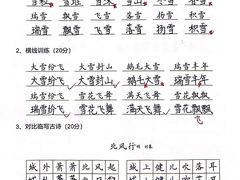 瑞雪 飘雪 飞雪 落雪 扬雪 积雪
瑞雪 飘雪 飞雪 落雪 扬雪 积雪
2、横线训练（20分）
大雪纷飞 大雪封山 鹅毛大雪 瑞雪丰年
大雪纷飞 大雪封山 鹅毛大雪 瑞雪丰年
大雪纷飞 雪花飞舞 满天飞舞 雪花飘飘
大雪纷飞 雪花飞舞 满天飞舞 雪花飘飘
3、对比临写古诗（20分）
北风行
城外萧萧北风起 城上健儿吹落耳